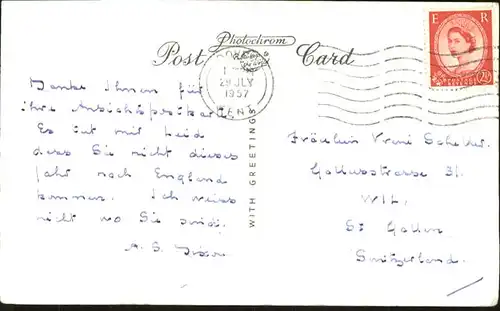 Photochrom
Post Card
E R
2½
28 JLY
1957
KENT
Danke Ihnen für
ihre Ansichtspostkarte
Es tut mir leid
dass Sie nicht dieses
Jahr nach England
kommen. Ich weiss
nicht wo Sie sind.
A. S. Dixon
WITH GREETINGS
Fräulein Vreni
Gallusstrasse 31.
WIL,
St Gallen.
Switzerland.